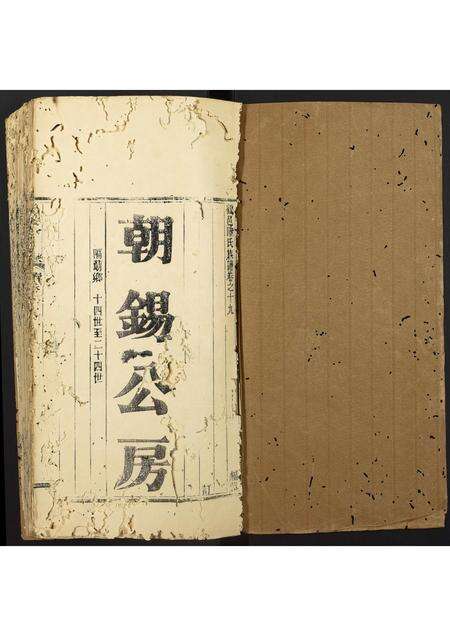 邑陳氏族譜卷之十九
朝錫公房
陽鄉 十四世至二十四世